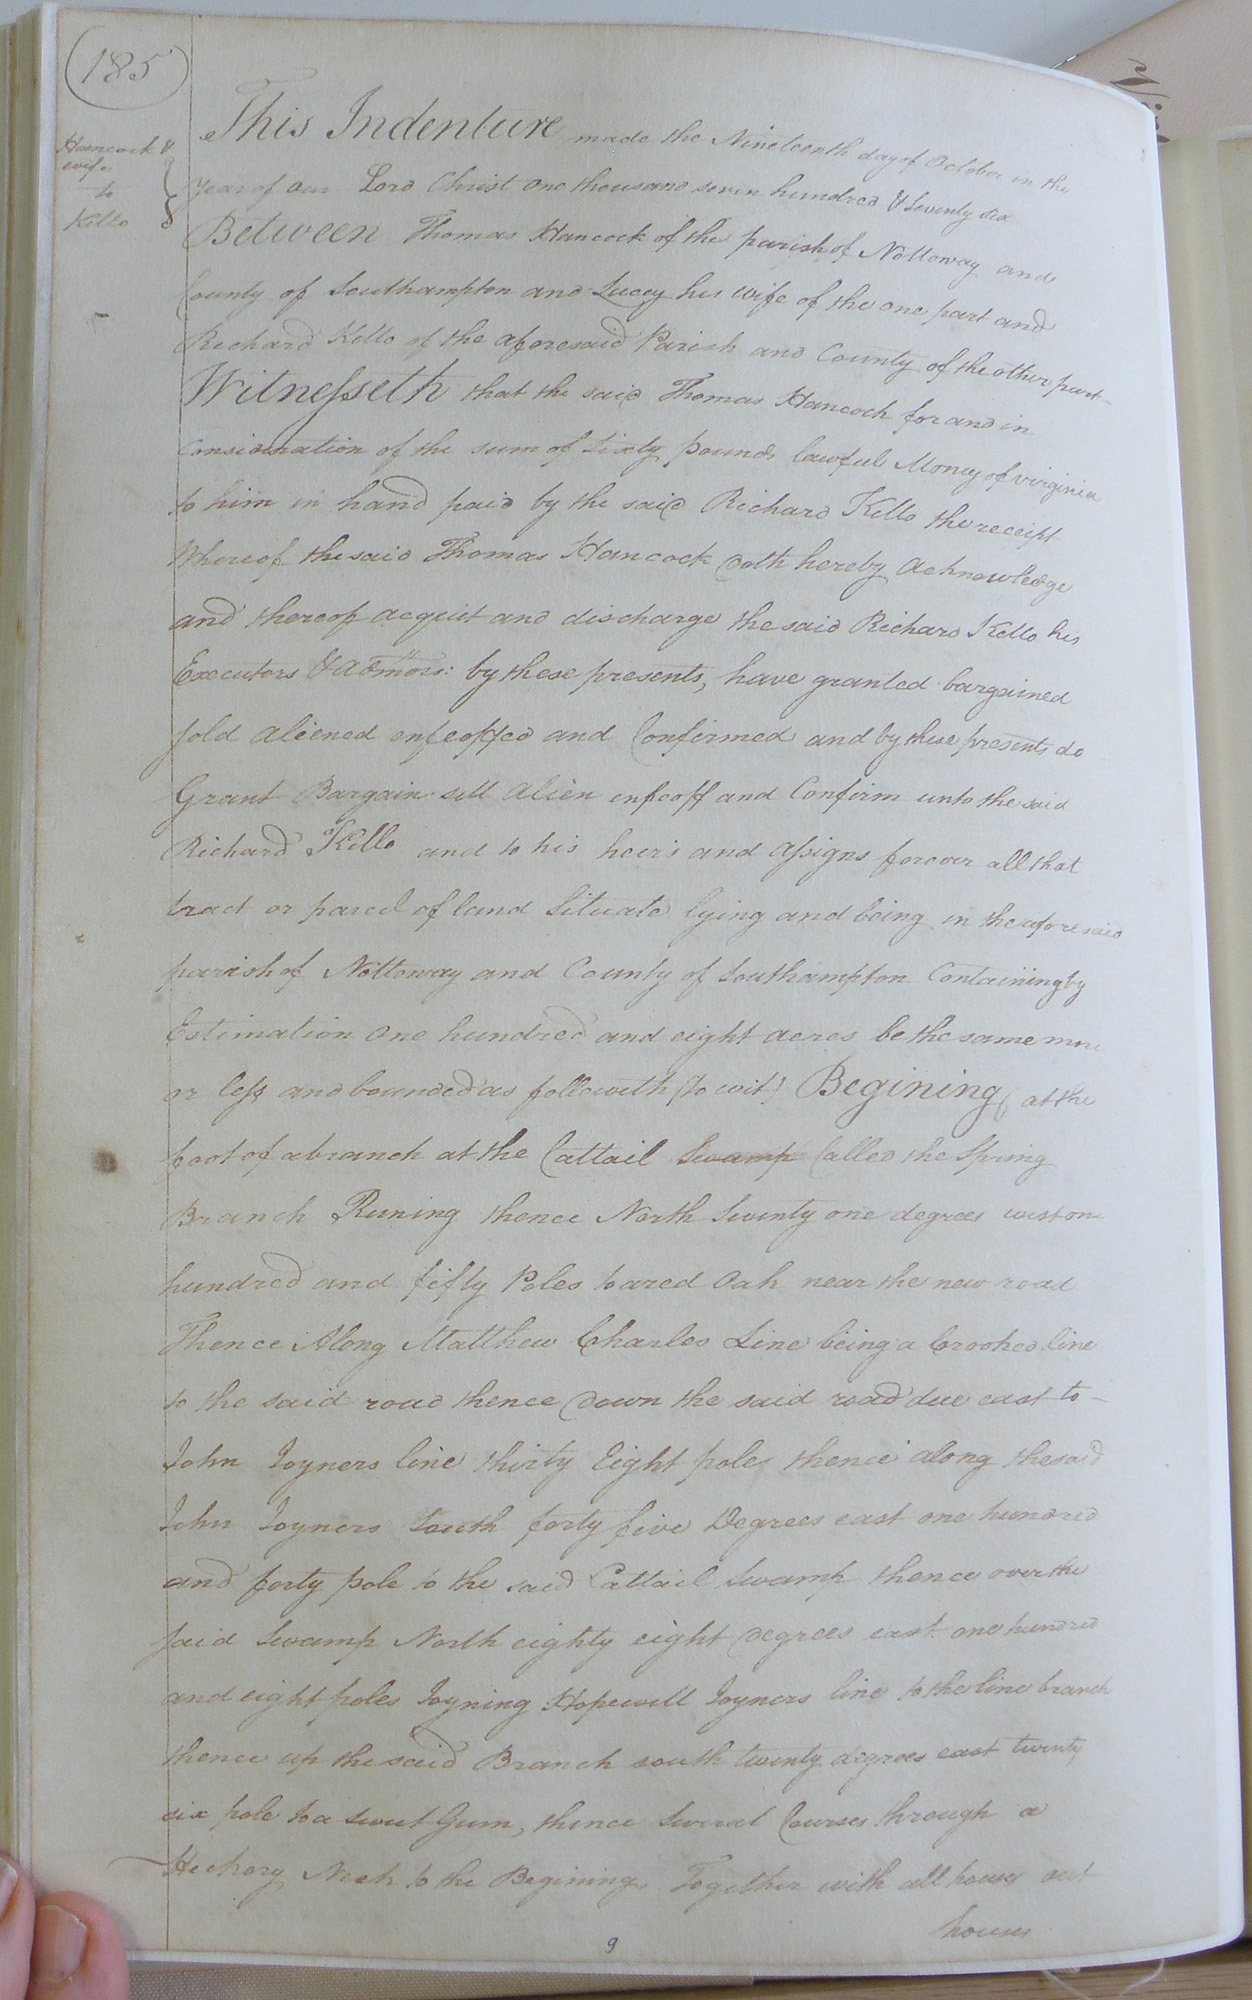 185
Hancock &
wife
to
Kello
This Indenture made the Nineteenth day of October in the
Year of our Lord Christ One thousand seven hundred & Seventy six
Between Thomas Hancock of the parish of Nottoway and
County of Southampton and Lucey his wife of the one part and
Richard Kello of the aforesaid Parish and County of the other part
Witnesseth that the said Thomas Hancock for and in
Consideration of the sum of Sixty pounds lawful Money of virginia
to him in hand paid by the said Richard Kello the receipt
Whereof the said Thomas Hancock doth hereby acknowledge
and thereof acquit and discharge the said Richard Kello his
Executors & admors: by these presents, have granted bargained
sold aliened enfeoffed and Confirmed and by these presents do
Grant Bargain sell alien enfeoff and Confirm unto the said
Richard Kello and to his heirs and assigns forever all that
tract or parcel of land Situate lying and being in the aforesaid
parish of Nottoway and County of Southampton Containing by
Estimation One hundred and eight acres be the same more
or less and bounded as followeth (to wit) Begining at the
foot of a branch at the Cattail Swamp Called the Spring
Branch Runing thence North Seventy one degrees west one
hundred and fifty Poles to a red Oak near the new road
Thence Along Matthew Charles Line being a Crooked line
to the said road thence down the said road due east to
John Joyners line thirty Eight poles thence along the said
John Joyners South forty five Degrees east one hundred
and forty pole to the said Cattail Swamp thence over the
said Swamp North eighty eight degrees east one hundred
and eight poles Joyning Hopewell Joyners line to the line branch
thence up the said Branch south twenty degrees east twenty
six pole to a sweet Gum, thence Several Courses through a
Hickory Neck to the Begining Together with all houses out
houses
9